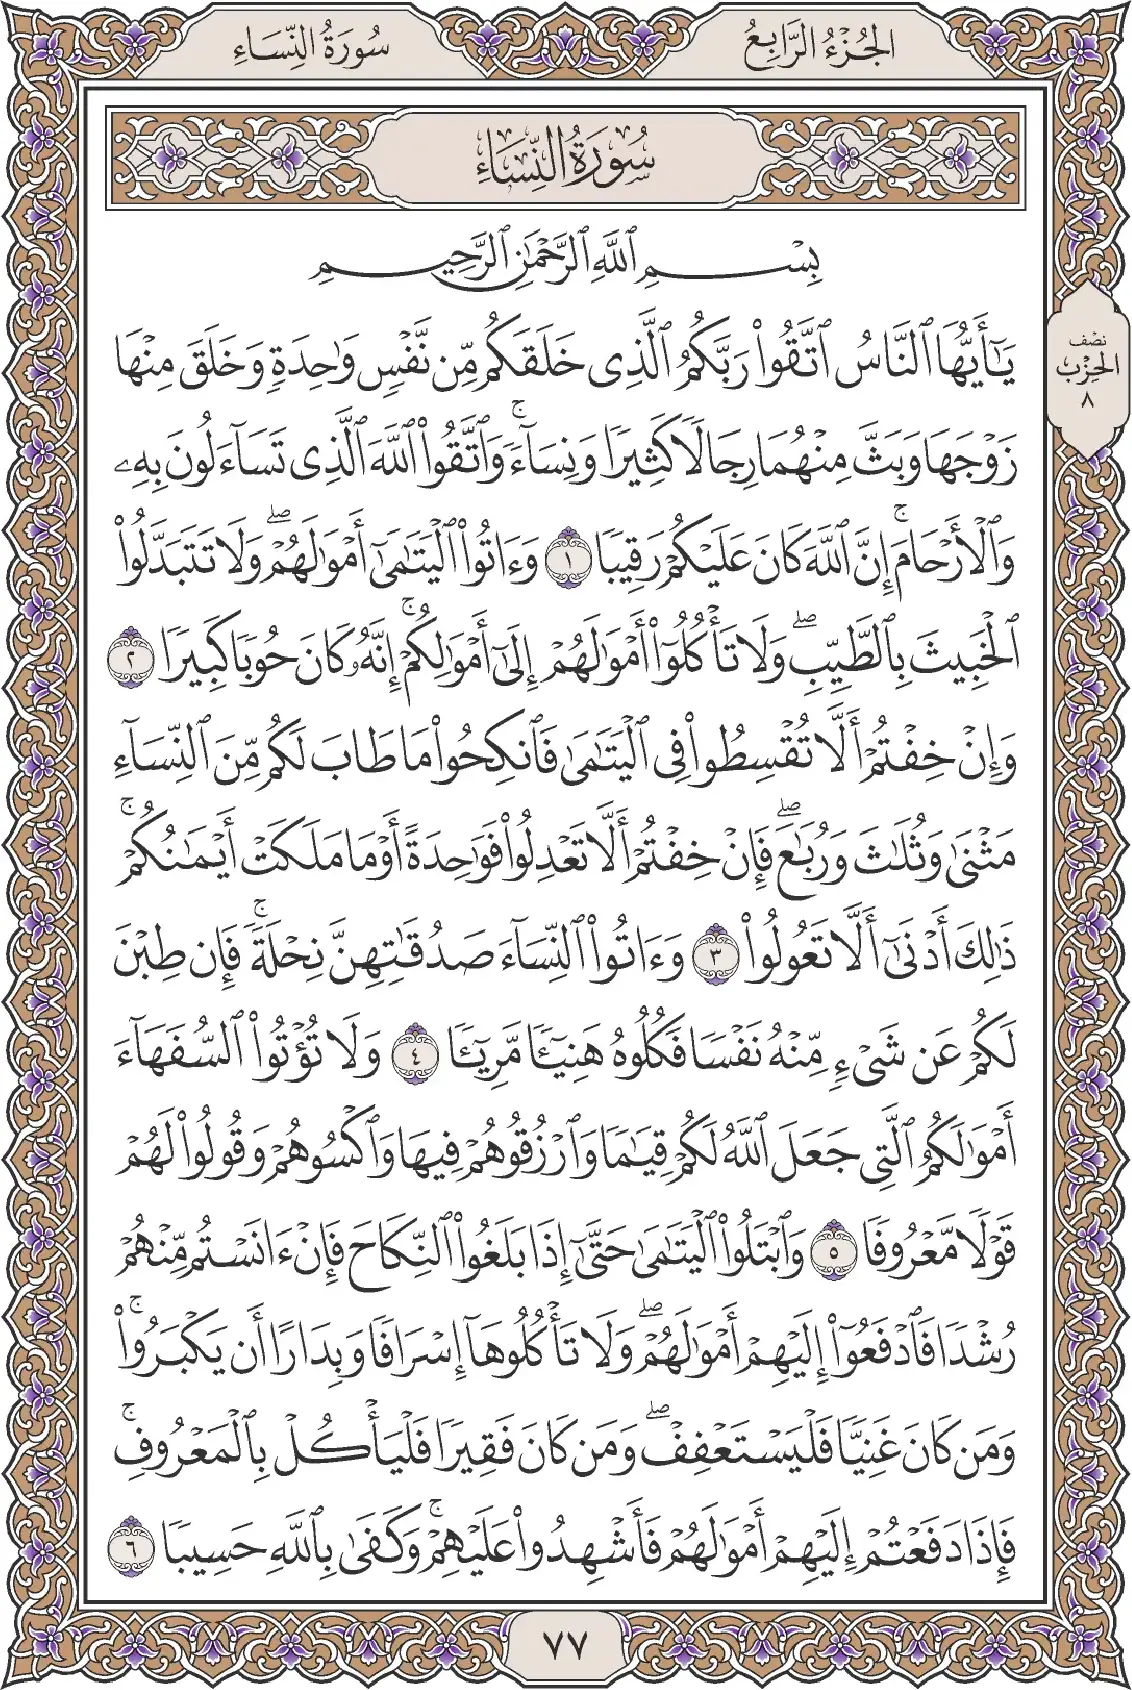 الجُزْءُ الرَّابِعُ
سُورَةُ النِّسَاءِ
سُورَةُ النِّسَاءِ
بِسْمِ ٱللَّهِ ٱلرَّحْمَٰنِ ٱلرَّحِيمِ
يَٰٓأَيُّهَا ٱلنَّاسُ ٱتَّقُوا۟ رَبَّكُمُ ٱلَّذِى خَلَقَكُم مِّن نَّفْسٍ وَٰحِدَةٍ وَخَلَقَ مِنْهَا
نصف
الحِزْب
٨
زَوْجَهَا وَبَثَّ مِنْهُمَا رِجَالًا كَثِيرًا وَنِسَآءً ۚ وَٱتَّقُوا۟ ٱللَّهَ ٱلَّذِى تَسَآءَلُونَ بِهِۦ
وَٱلْأَرْحَامَ ۚ إِنَّ ٱللَّهَ كَانَ عَلَيْكُمْ رَقِيبًا ١ وَءَاتُوا۟ ٱلْيَتَٰمَىٰٓ أَمْوَٰلَهُمْ ۖ وَلَا تَتَبَدَّلُوا۟
ٱلْخَبِيثَ بِٱلطَّيِّبِ ۖ وَلَا تَأْكُلُوٓا۟ أَمْوَٰلَهُمْ إِلَىٰٓ أَمْوَٰلِكُمْ ۚ إِنَّهُۥ كَانَ حُوبًا كَبِيرًا ٢
وَإِنْ خِفْتُمْ أَلَّا تُقْسِطُوا۟ فِى ٱلْيَتَٰمَىٰ فَٱنكِحُوا۟ مَا طَابَ لَكُم مِّنَ ٱلنِّسَآءِ
مَثْنَىٰ وَثُلَٰثَ وَرُبَٰعَ ۖ فَإِنْ خِفْتُمْ أَلَّا تَعْدِلُوا۟ فَوَٰحِدَةً أَوْ مَا مَلَكَتْ أَيْمَٰنُكُمْ ۚ
ذَٰلِكَ أَدْنَىٰٓ أَلَّا تَعُولُوا۟ ٣ وَءَاتُوا۟ ٱلنِّسَآءَ صَدُقَٰتِهِنَّ نِحْلَةً ۚ فَإِن طِبْنَ
لَكُمْ عَن شَىْءٍ مِّنْهُ نَفْسًا فَكُلُوهُ هَنِيٓـًٔا مَّرِيٓـًٔا ٤ وَلَا تُؤْتُوا۟ ٱلسُّفَهَآءَ
أَمْوَٰلَكُمُ ٱلَّتِى جَعَلَ ٱللَّهُ لَكُمْ قِيَٰمًا وَٱرْزُقُوهُمْ فِيهَا وَٱكْسُوهُمْ وَقُولُوا۟ لَهُمْ
قَوْلًا مَّعْرُوفًا ٥ وَٱبْتَلُوا۟ ٱلْيَتَٰمَىٰ حَتَّىٰٓ إِذَا بَلَغُوا۟ ٱلنِّكَاحَ فَإِنْ ءَانَسْتُم مِّنْهُمْ
رُشْدًا فَٱدْفَعُوٓا۟ إِلَيْهِمْ أَمْوَٰلَهُمْ ۖ وَلَا تَأْكُلُوهَآ إِسْرَافًا وَبِدَارًا أَن يَكْبَرُوا۟ ۚ
وَمَن كَانَ غَنِيًّا فَلْيَسْتَعْفِفْ ۖ وَمَن كَانَ فَقِيرًا فَلْيَأْكُلْ بِٱلْمَعْرُوفِ ۚ
فَإِذَا دَفَعْتُمْ إِلَيْهِمْ أَمْوَٰلَهُمْ فَأَشْهِدُوا۟ عَلَيْهِمْ ۚ وَكَفَىٰ بِٱللَّهِ حَسِيبًا ٦
٧٧